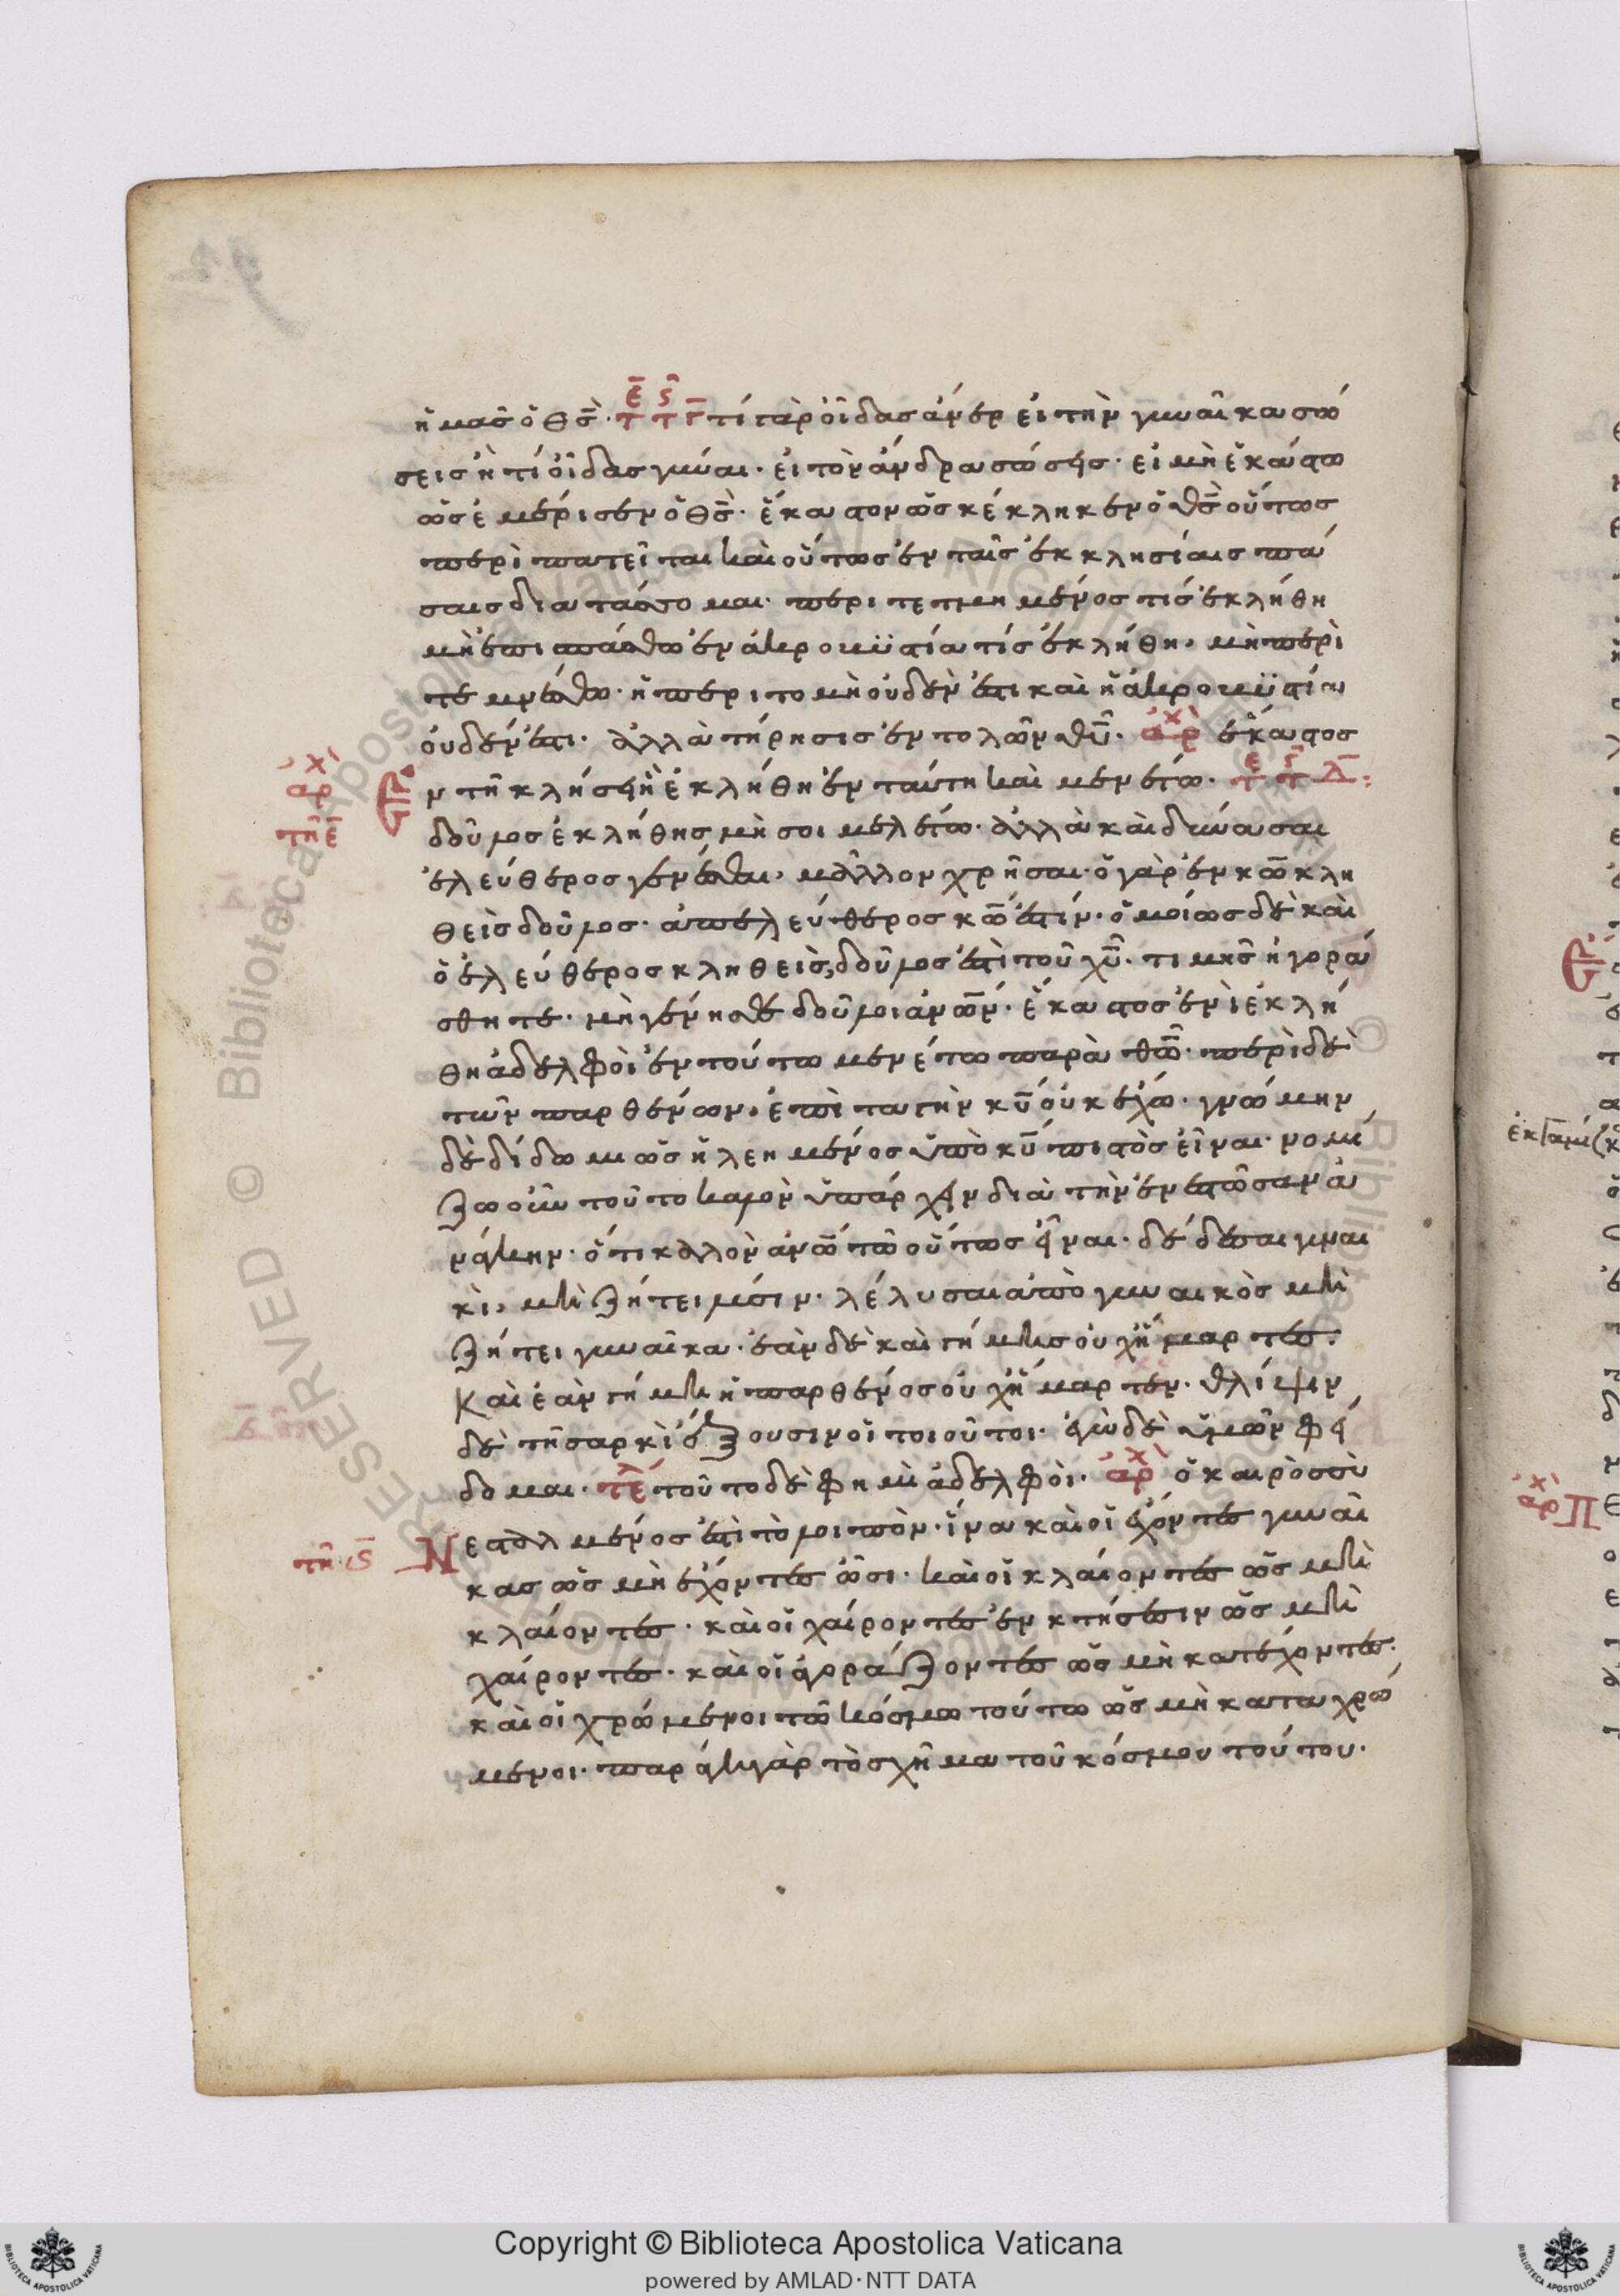 ἡμᾶς ὁ θς̄· τί γὰρ οἶδας ἄνερ εἰ τὴν γυναῖκα σώ
σεις ἢ τί οἶδας γύναι· εἰ τὸν ἄνδρα σώσεις· εἰ μὴ ἑκάστω
ὡς ἐμέρισεν ὁ θς̄· ἕκαστον ὡς κέκληκεν ὁ θς̄ οὕτως
περὶπατεῖται καὶ οὕτως ἐν ταῖς ἐκκλησίαις πά
σαις διατάσσομαι· περιτετμημένος τίς ἐκλήθη
μὴ ἐπισπάσθω ἐν ἀκροβυστία τίς ἐκλήθη, μὴ περὶ
τεμνέσθω· ἡ περιτομὴ οὐδέν ἐστι καὶ ἡ ἀκροβυστία
οὐδέν ἐστι· ἀλλὰ τήρησις ἐντολῶν θῡ· ἀρχ ἕκαστος
ν τῆ κλήσει ἧ ἐκλήθη ἐν ταύτη καὶ μενέτω·
δοῦλος ἐκλήθης μή σοι μελέτω· ἀλλὰ καὶ δύνασαι
ἐλεύθερος γενέσθαι, μᾶλλον χρῆσαι· ὁ γὰρ ἐν κω̄ κλη
θεὶς δοῦλος· ἀπελεύθερος κω̄ ἐστίν· ὁμοίως δὲ καὶ
ὁ ἐλεύθερος κληθεὶς, δοῦλος ἐστὶ τοῦ χῡ· τιμῆς ἠγορά
σθητε· μὴ γένησθε δοῦλοι ἀνω̄ν· ἕκαστος ἐν ὧ ἐκλή
θη ἀδελφοὶ ἐν τούτω μενέτω παρὰ θω̄· περὶ δὲ
τῶν παρθένων, ἐπὶταγὴν κῡ οὐκ ἔχω· γνώμην
δὲ δίδωμι ὡς ἠλεημένος ὑπὸ κῡ πιστὸς εἶναι· νομί
ζω οὖν τοῦτο καλὸν ὑπάρχειν διὰ τὴν ἐνεστῶσαν ἀ
νάγκην· ὅτι καλὸν ἀνω̄ τῶ οὕτως εἶναι· δέδεσαι γυναι
κὶ, μὴ ζήτει λύσιν· λέλυσαι ἀπὸ γυναικὸς μὴ
ζήτει γυναῖκα· ἐὰν δὲ καὶ γήμης οὐχ ἥμαρτες·
Καὶ ἐὰν γήμη ἡ παρθένος οὐχ ἥμαρτεν· θλίψιν
δὲ τῆ σαρκὶ ἕξουσιν οἱ τοιοῦτοι· ἐγὼ δὲ ὑμῶν φεί
δομαι· τέλ τοῦτο δέ φημι ἀδελφοί· ἀρχ ὁ καιρὸς συ
νεσταλμένος ἐστὶ τὸ λοιπὸν· ἵνα καὶ οἱ ἔχοντες γυναῖ
κας ὡς μὴ ἔχοντες ὦσι· καὶ οἱ κλαίοντες ὡς μὴ
κλαίοντες· καὶ οἱ χαίροντες ἐν κτήσεσιν ὡς μὴ
χαίροντες· καὶ οἱ ἀγοράζοντες ὡς μὴ κατέχοντες·
καὶ οἱ χρώμενοι τῶ κόσμω τούτω ὡς μὴ καταχρώ
μενοι· παράγει γὰρ τὸ σχῆμα τοῦ κόσμου τούτου·
Copyright © Biblioteca Apostolica Vaticana
powered by AMLAD·NTT DATA